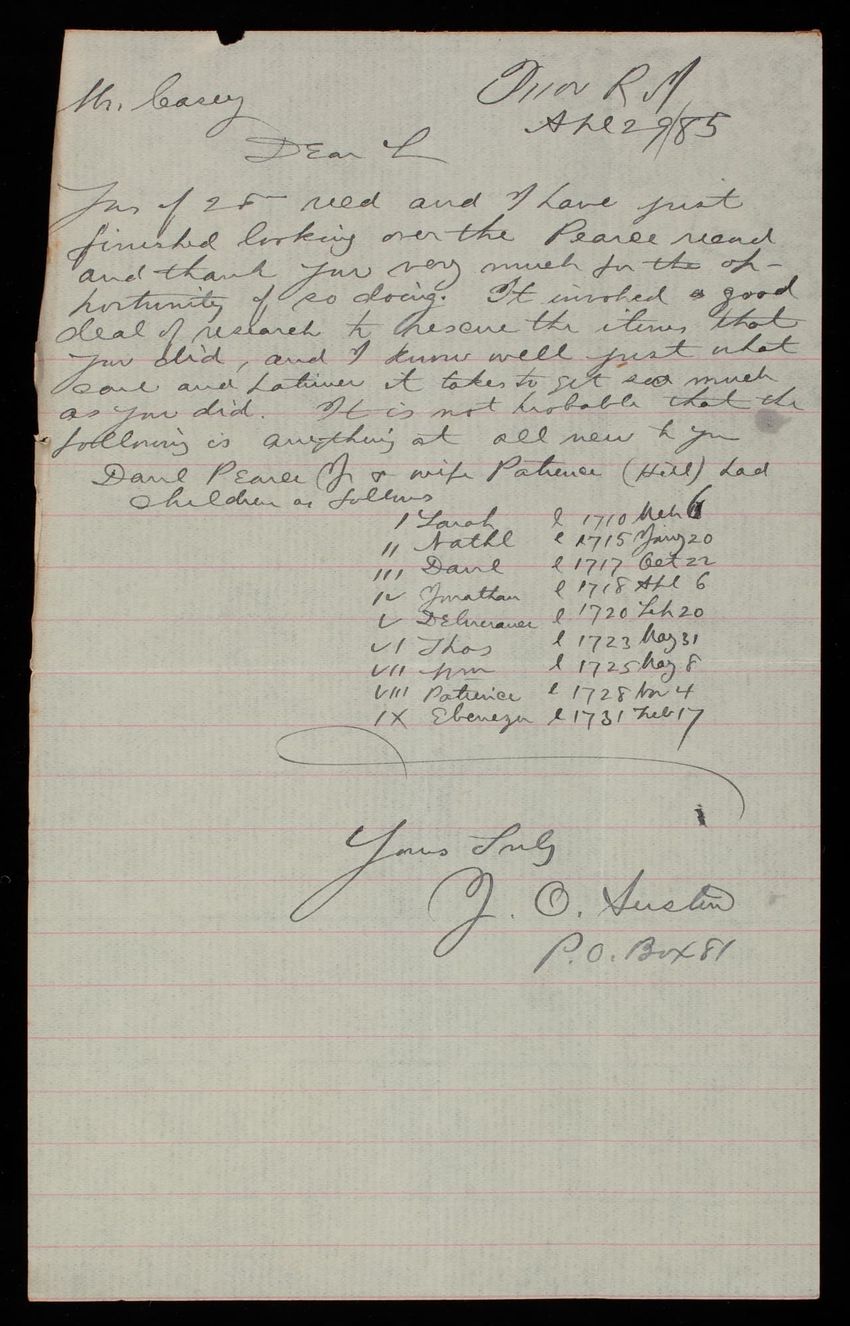 Prov R I
Apl 29/85
Mr. Casey
Dear S
Yrs of 25 recd and I have just
finished looking over the Pearce record
and thank you very much for the op-
portunity of so doing. It involved a good
deal of research to rescue the items that
you did, and I know well just what
care and it takes to get so much
as you did. It is not probable that the
following is anything at all new to you
Danl Pearce Jr & wife Patience (Hill) had
children as follows
I Sarah b 1710 Mch 6
II Nathl b 1715 Jany 20
III Danl b 1717 Oct 22
IV Jonathan b 1718 Apl 6
V Deliverance b 1720 Feb 20
VI Thos b 1723 May 31
VII Wm b 1725 May 8
VIII Patience b 1728 Nov 4
IX Ebenezer b 1731 Feb 17
Yours Truly
J. O. Austin
P.O. Box 81